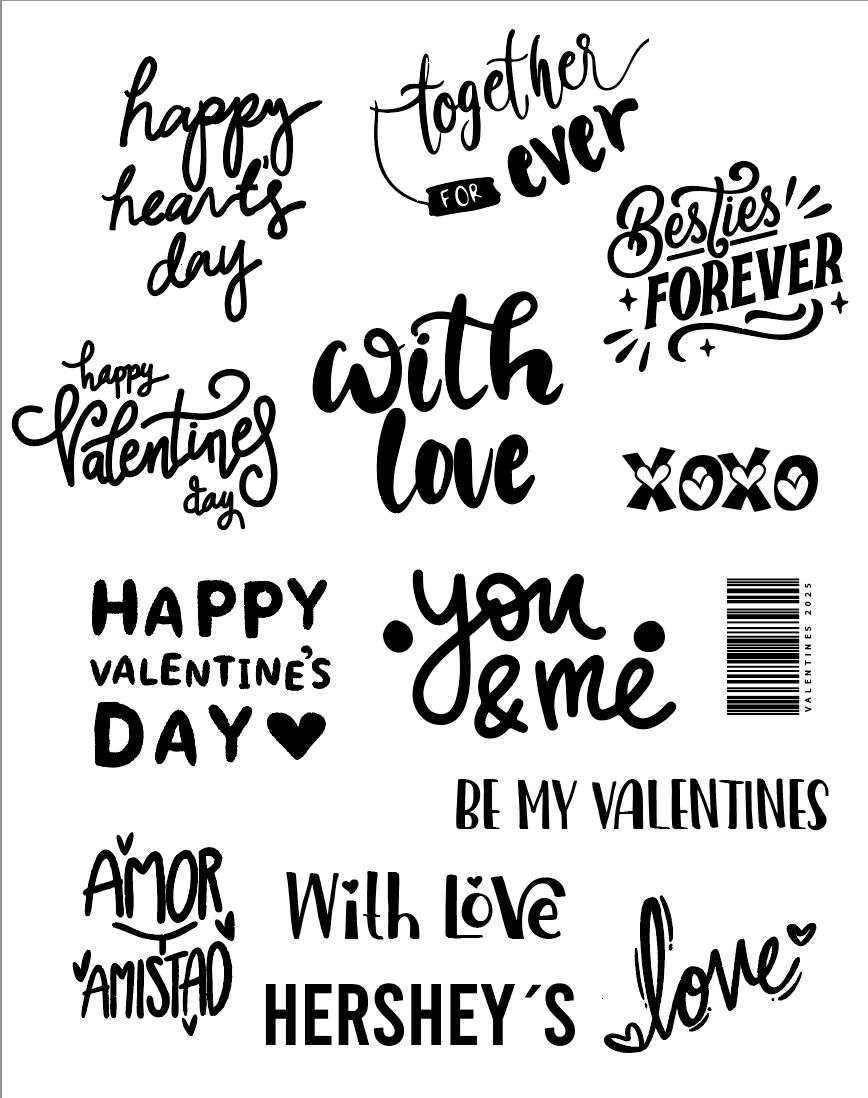 happy
heart's
day
together
FOR ever
Besties
FOREVER
happy
Valentines
day
with
love
xoxo
HAPPY
VALENTINE'S
DAY
you
&me
VALENTINES 2025
BE MY VALENTINES
AMOR
Y
AMISTAD
With Love
HERSHEY´S
love